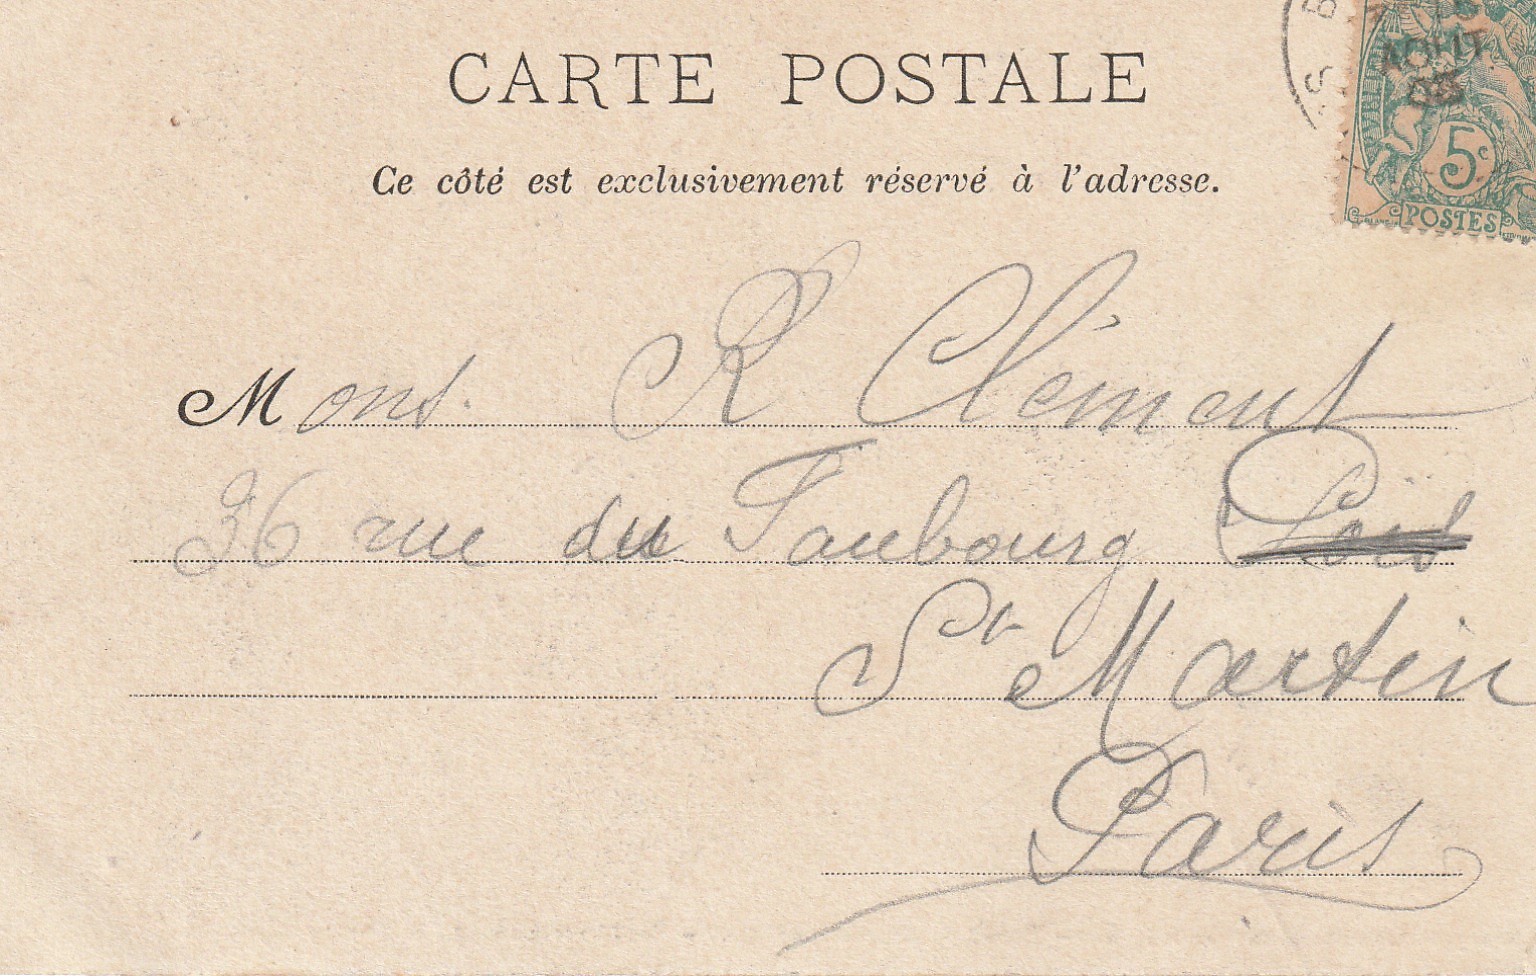 CARTE POSTALE
Ce côté est exclusivement réservé à l'adresse.
AOUT
5c
POSTES
Mons. R Clément
36 rue du Faubourg
St Martin
Paris